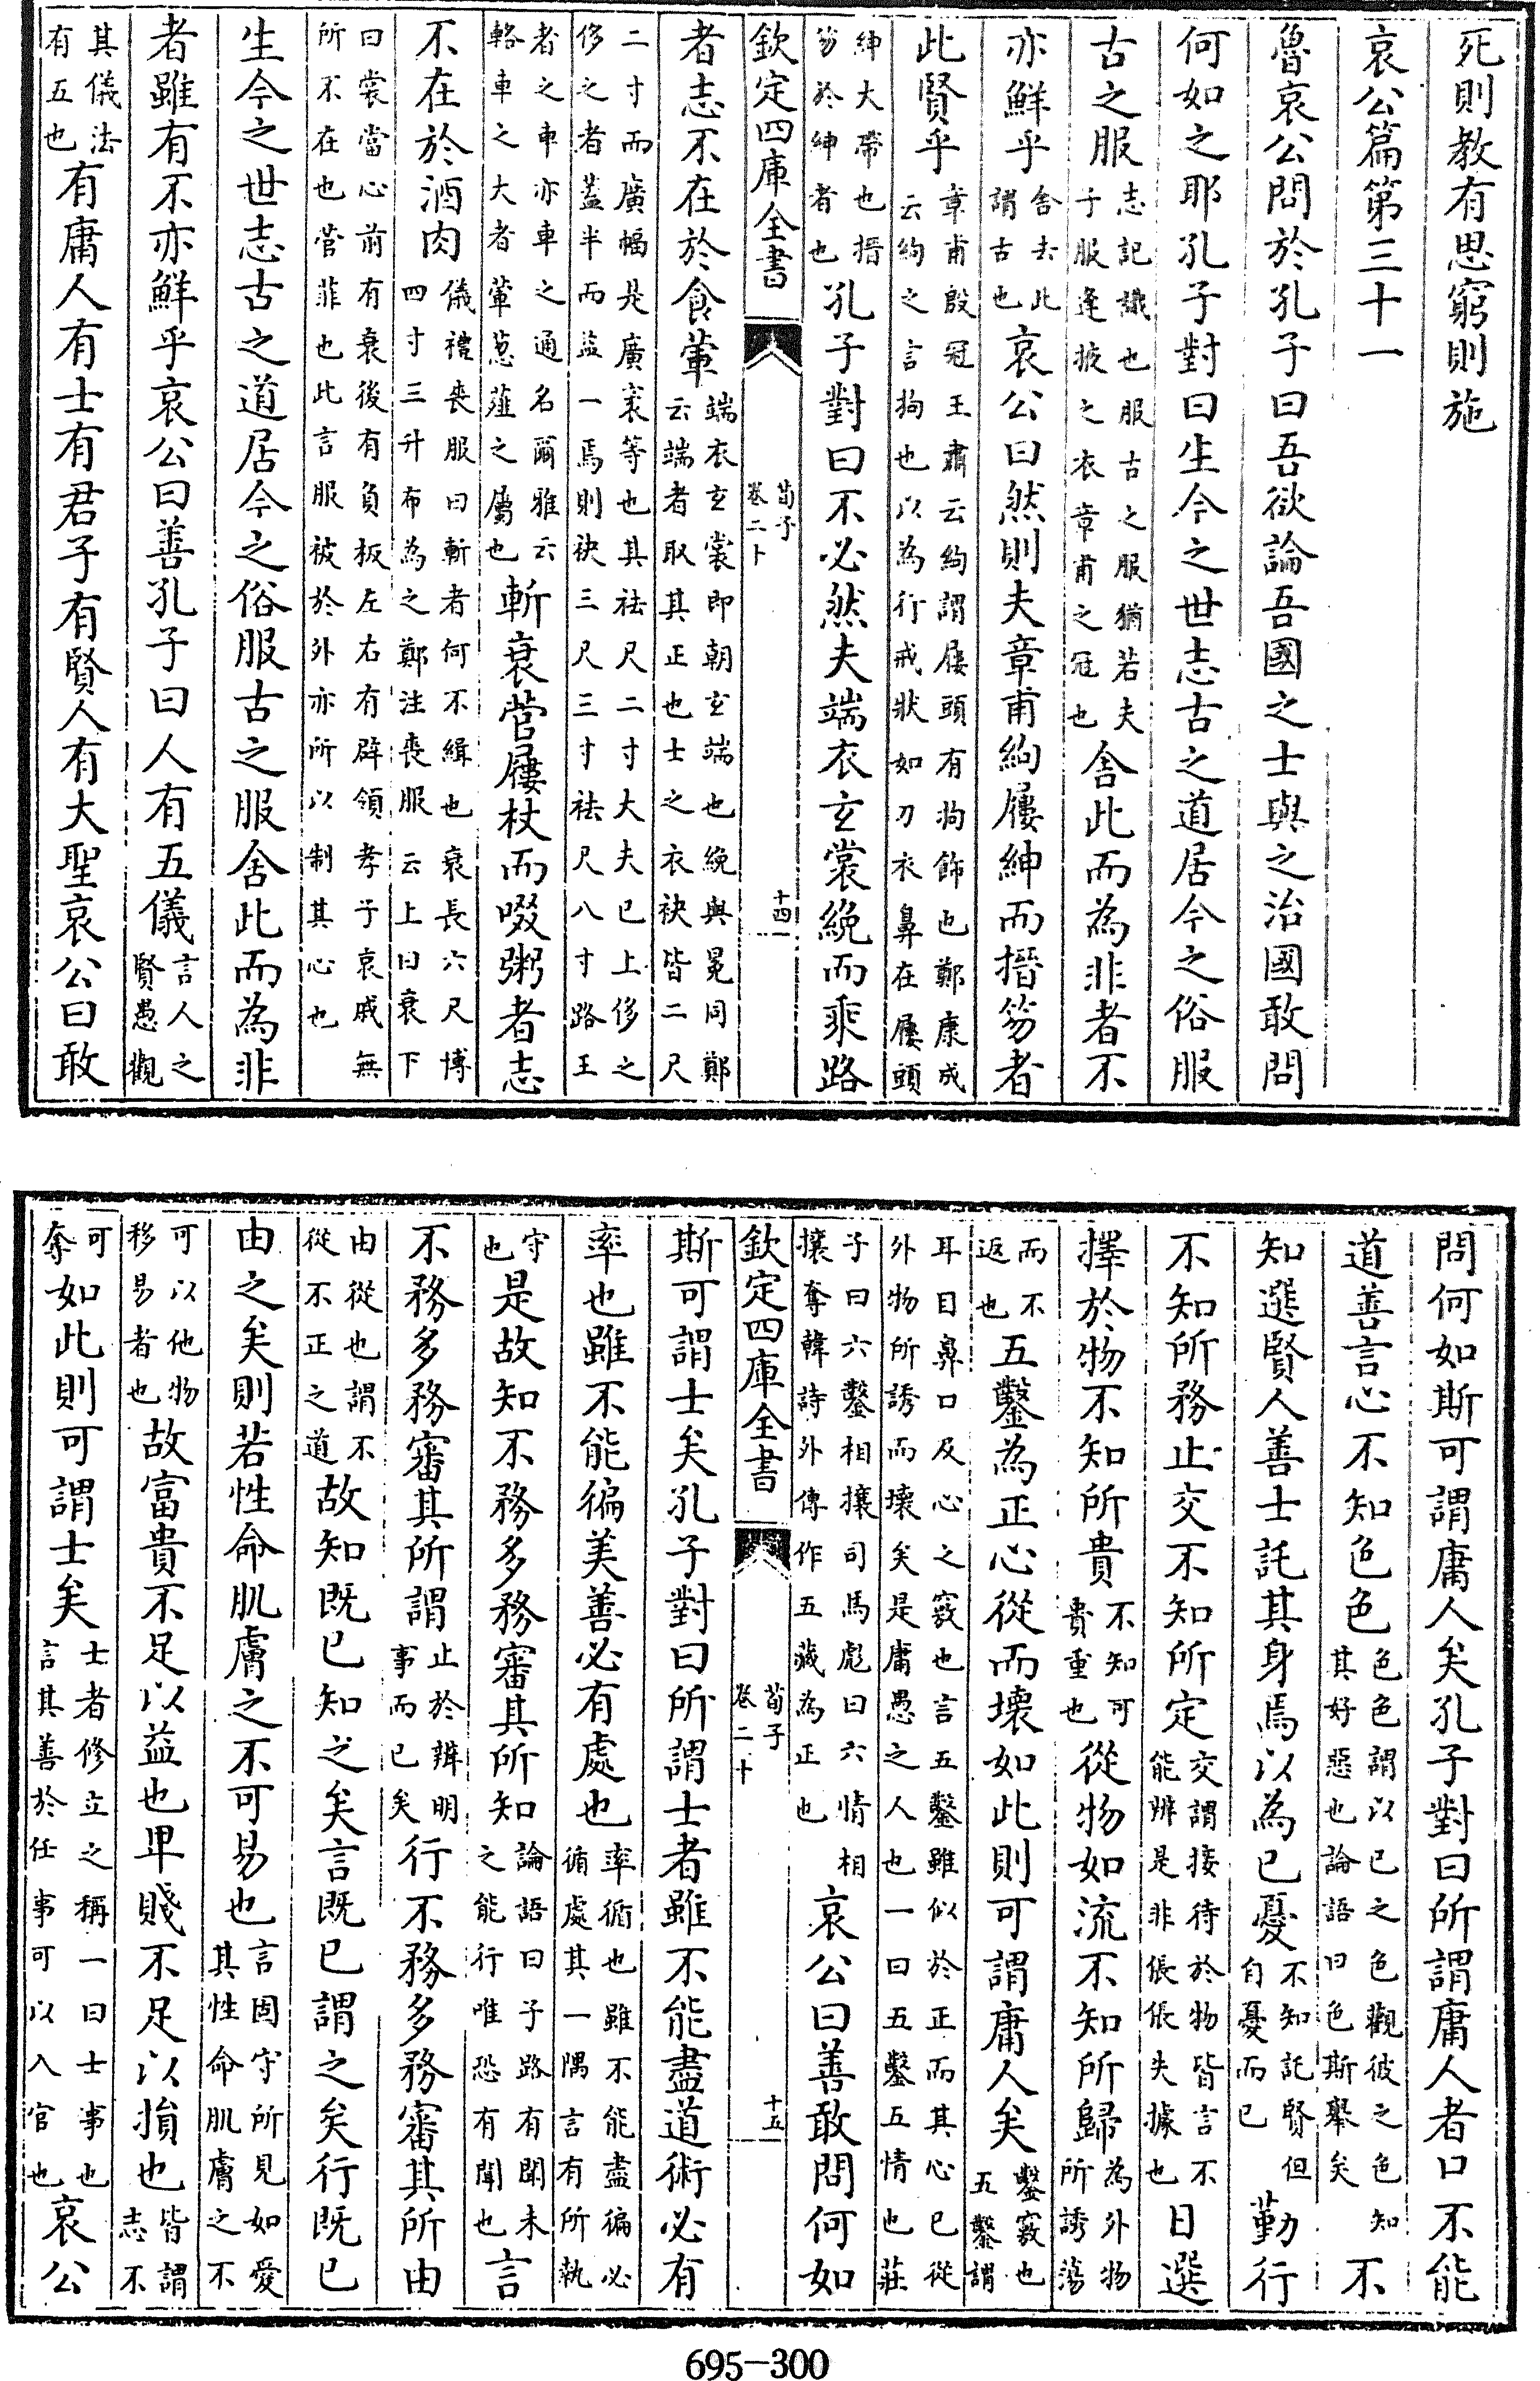 死則教有思窮則施
哀公篇第三十一
魯哀公問於孔子曰吾欲論吾國之士與之治國敢問
何如之耶孔子對曰生今之世志古之道居今之俗服
古之服志記識也服古之服猶若夫子服逢掖之衣章甫之冠也舍此而為非者不
亦鮮乎舍去此謂古也哀公曰然則夫章甫絇屨紳而搢笏者
此賢乎章甫殷冠王肅云絇謂屨頭有拘飾也鄭康成云絇之言拘也以為行戒狀如刀衣鼻在屨頭
紳大帶也搢笏於紳者也孔子對曰不必然夫端衣玄裳絻而乘路
欽定四庫全書 荀子卷二十 十四
者志不在於食葷端衣玄裳即朝玄端也絻與冕同鄭云端者取其正也士之衣袂皆二尺
二寸而廣幅是廣袤等也其袪尺二寸大夫已上侈之侈之者蓋半而益一焉則袂三尺三寸袪尺八寸路王
者之車亦車之通名爾雅云輅車之大者葷葱薤之屬也斬衰菅屨杖而啜粥者志
不在於酒肉儀禮喪服曰斬者何不緝也衰長六尺博四寸三升布為之鄭注喪服云上曰衰下
曰裳當心前有衰後有負板左右有辟領孝子哀戚無所不在也菅菲也此言服被於外亦所以制其心也
生今之世志古之道居今之俗服古之服舍此而為非
者雖有不亦鮮乎哀公曰善孔子曰人有五儀言人之賢愚觀
其儀法有五也有庸人有士有君子有賢人有大聖哀公曰敢
問何如斯可謂庸人矣孔子對曰所謂庸人者口不能
道善言心不知色色色色謂以已之色觀彼之色知其好惡也論語曰色斯舉矣不
知選賢人善士託其身焉以為已憂不知託賢但自憂而已勤行
不知所務止交不知所定交謂接待於物皆言不能辨是非倀倀失據也日選
擇於物不知所貴不知可貴重也從物如流不知所歸為外物所誘蕩
而不返也五鑿為正心從而壞如此則可謂庸人矣鑿竅也五鑿謂
耳目鼻口及心之竅也言五鑿雖似於正而其心已從外物所誘而壞矣是庸愚之人也一曰五鑿五情也莊
子曰六鑿相攘司馬彪曰六情相攘奪韓詩外傳作五藏為正也哀公曰善敢問何如
欽定四庫全書 荀子卷二十 十五
斯可謂士矣孔子對曰所謂士者雖不能盡道術必有
率也雖不能徧美善必有處也率循也雖不能盡徧必循處其一隅言有所執
守也是故知不務多務審其所知論語曰子路有聞未之能行唯恐有聞也言
不務多務審其所謂止於辨明事而已矣行不務多務審其所由
由從也謂不從不正之道故知既已知之矣言既已謂之矣行既已
由之矣則若性命肌膚之不可易也言固守所見如愛其性命肌膚之不
可以他物移易者也故富貴不足以益也卑賤不足以損也皆謂志不
可奪如此則可謂士矣士者修立之稱一曰士事也言其善於任事可以入官也哀公
695-300